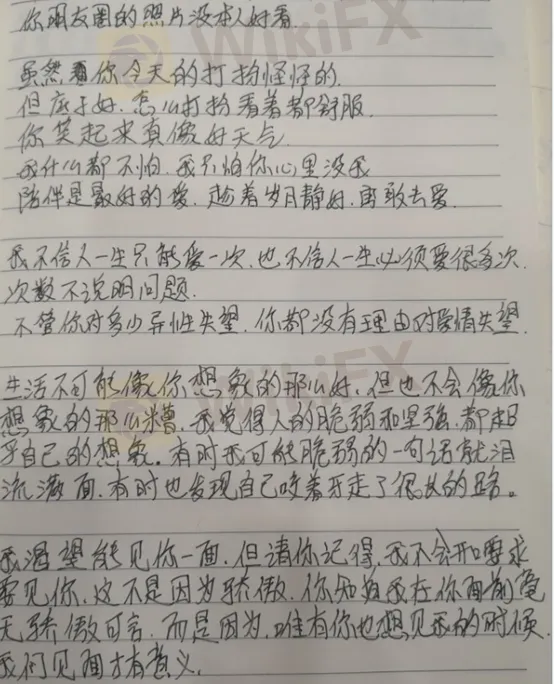 你朋友圈的照片没本人好看
虽然看你今天的打扮怪怪的.
但底子好.怎么打扮看着都舒服.
你笑起来真像好天气
我什么都不怕.我只怕你心里没我
陪伴是最好的爱.趁着岁月静好.勇敢去爱.
我不信人一生只能爱一次.也不信人一生必须爱很多次.
次数不说明问题.
不管你对多少异性失望.你都没有理由对爱情失望.
生活不可能像你想象的那么好.但也不会像你
想象的那么糟.我觉得人的脆弱和坚强.都超
乎自己的想象.有时我可能脆弱的一句话就泪
流满面.有时也发现自己咬着牙走了很长的路。
我渴望能见你一面.但请你记得.我不会开口要求
要见你.这不是因为骄傲.你知道我在你面前毫
无骄傲可言.而是因为.唯有你也想见我的时候.
我们见面才有意义.
WikiFX
WikiFX
WikiFX